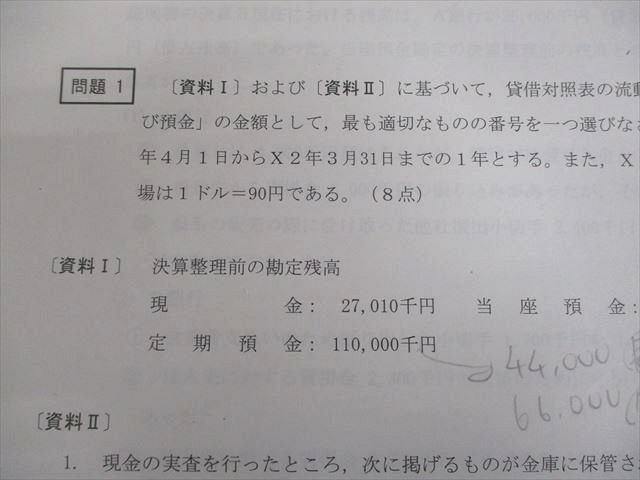 問題 1
〔資料Ⅰ〕および〔資料Ⅱ〕に基づいて，貸借対照表の流動
び預金」の金額として，最も適切なものの番号を一つ選びな
年４月１日からＸ２年３月31日までの１年とする。また，Ｘ
場は１ドル＝90円である。（８点）
〔資料Ⅰ〕 決算整理前の勘定残高
現 金： 27,010千円 当 座 預 金：
定 期 預 金： 110,000千円
44,000
66,000
〔資料Ⅱ〕
1. 現金の実査を行ったところ，次に掲げるものが金庫に保管さ